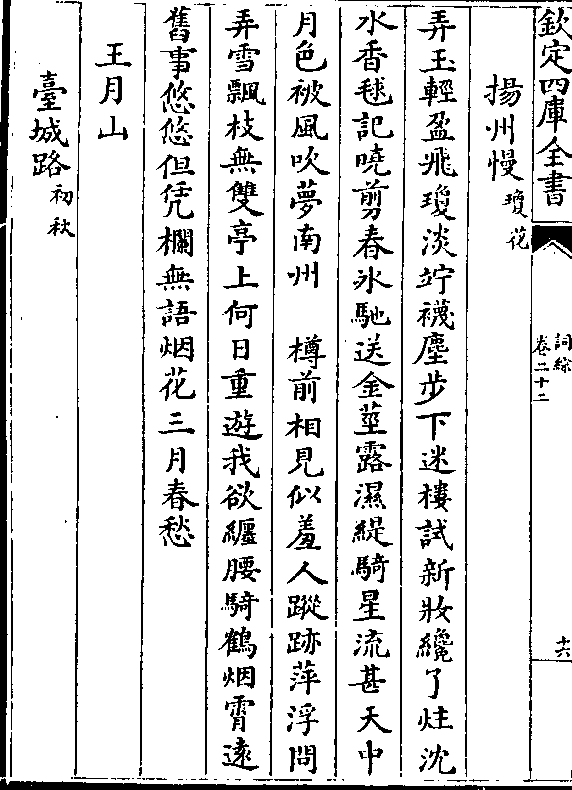 欽定四庫全書
詞綜
卷二十二
十六
揚州慢瓊花
弄玉輕盈飛瓊淡竚襪塵步下迷樓試新妝纔了炷沈
水香毬記曉剪春氷馳送金莖露濕緹騎星流甚天中
月色被風吹夢南州　樽前相見似羞人蹤跡萍浮問
弄雪飄枝無雙亭上何日重遊我欲纏腰騎鶴烟霄遠
舊事悠悠但凭欄無語烟花三月春愁
王月山
臺城路初秋